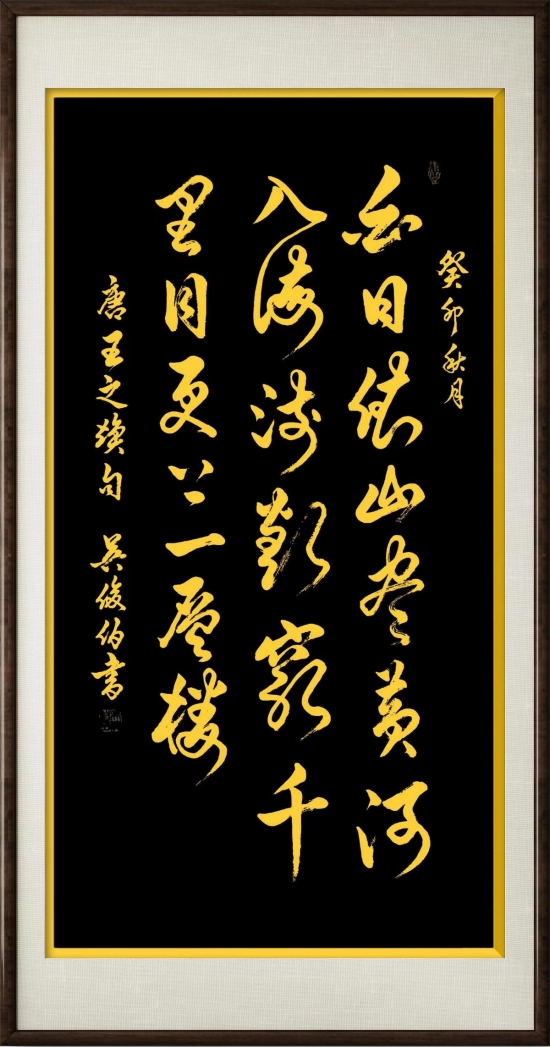 癸卯秋月
白日依山尽黄河
入海流欲穷千
里目更上一层楼
唐王之焕句 吴俊伯书